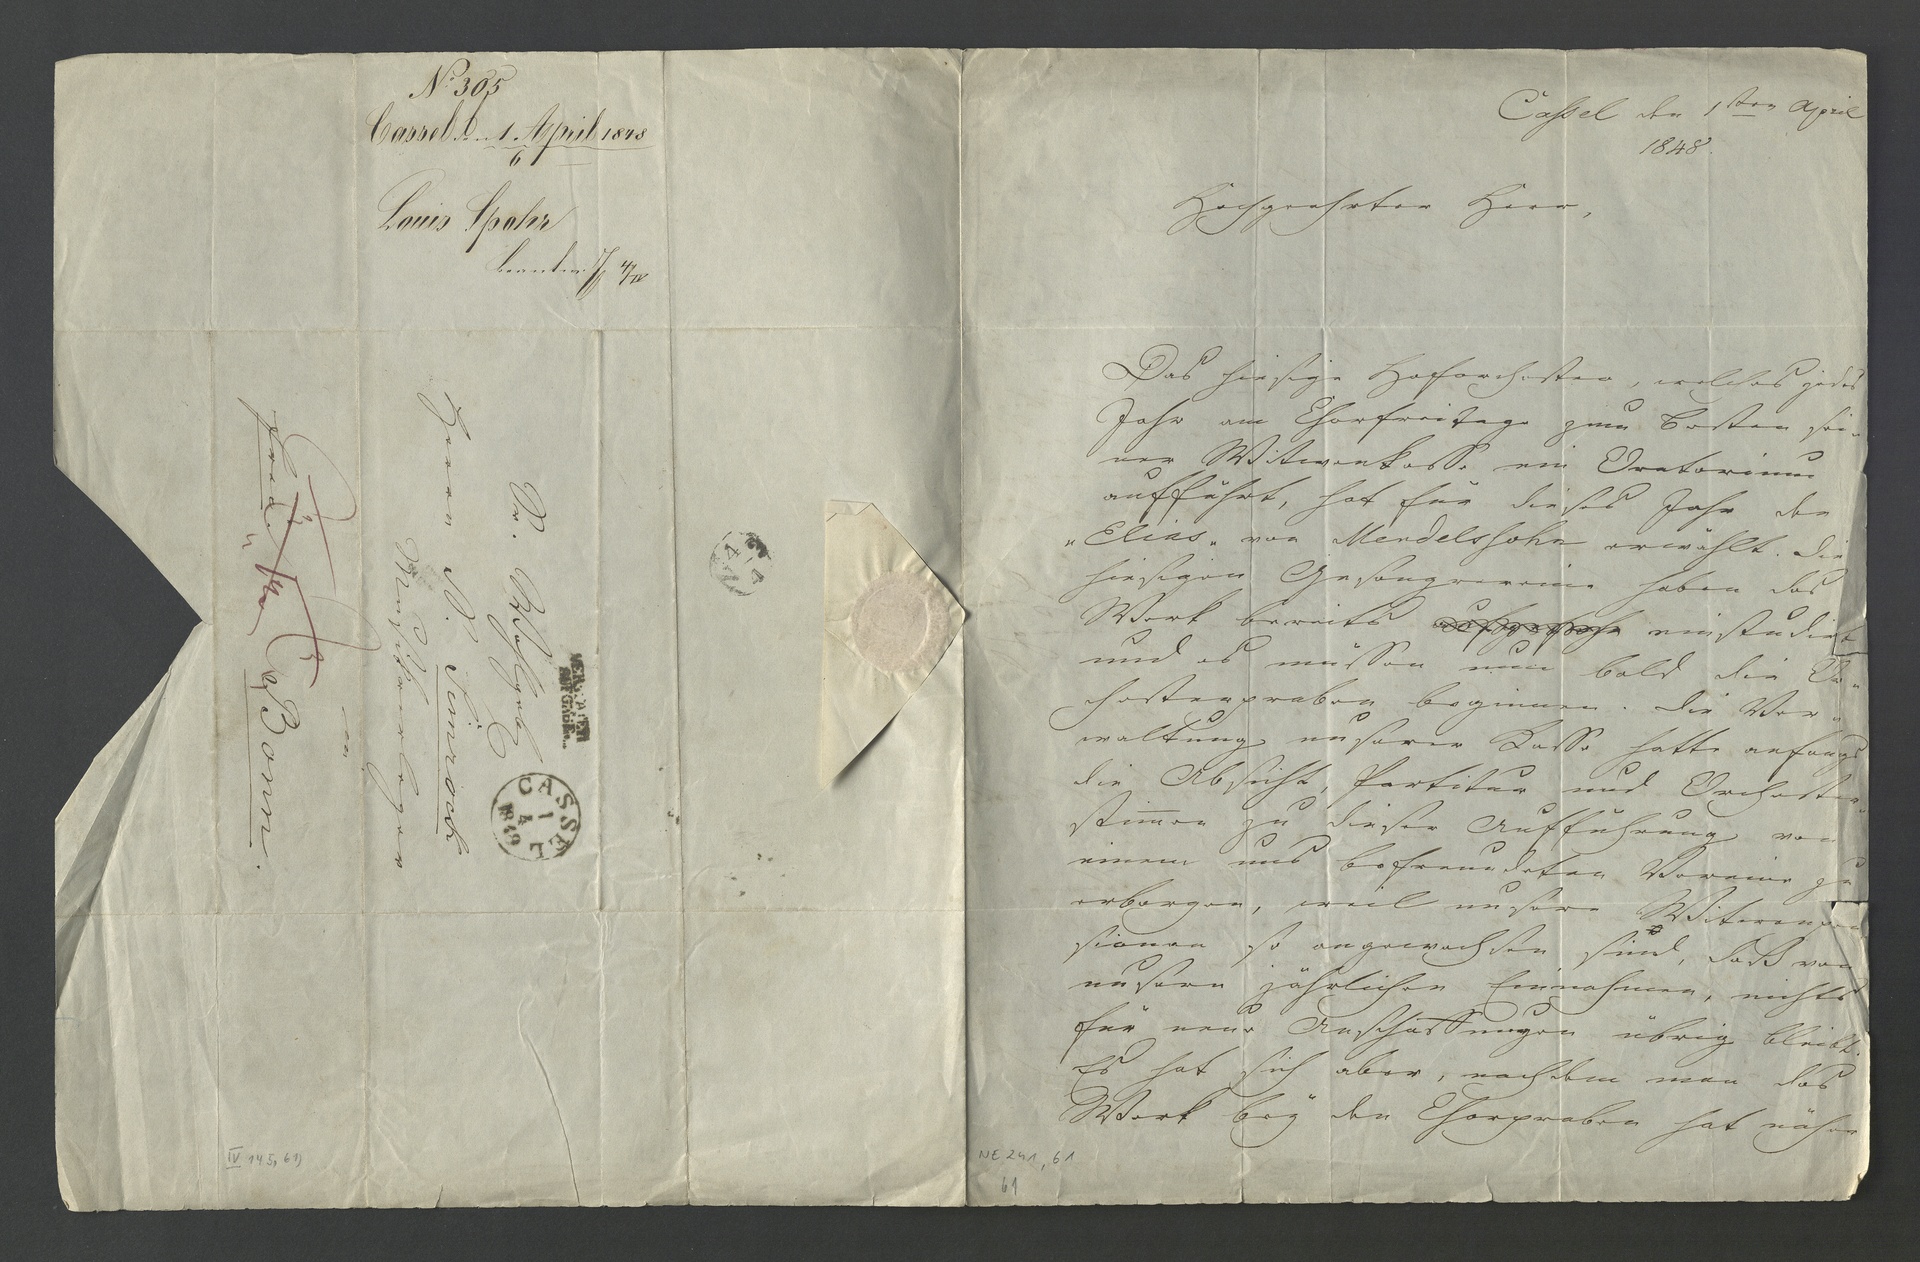 No 305
Cassel den 1. April 1848
6
Louis Spohr
beantw. 4/IV
Herrn P. Simrock
Wohlgeb
Musikverleger
in
Bonn.
frei
CASSEL
1
4
184
Cassel den 1sten April
1848.
Hochgeehrter Herr,
Das hiesige Hoforchester, welches jedes
Jahr am Charfreitage zum Besten sei-
ner Witwenkasse ein Oratorium
aufführt, hat für dieses Jahr den
„Elias„ von Mendelssohn erwählt. Die
hiesigen Gesangvereine haben das
Werk bereits einstudirt
und es müssen nun bald die Or-
chesterproben beginnen. Die Ver-
waltung unserer Kasse hatte anfangs
die Absicht, Partitur und Orchester-
stimmen zu dieser Aufführung von
einem uns befreundeten Vereine zu
erborgen, weil unsere Witwenpen
sionen so angewachsen sind, daß von
unsern jährlichen Einnahmen, nichts
für neue Anschaffungen übrig bleibt.
Es hat sich aber, nachdem man das
Werk bey den Chorproben hat näher
IV 145, 61)
NE 241, 61
61